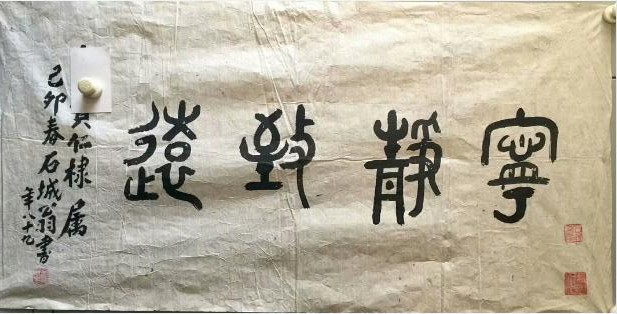 寧靜致遠
仁棣属
己卯春石城翁書
年八十九